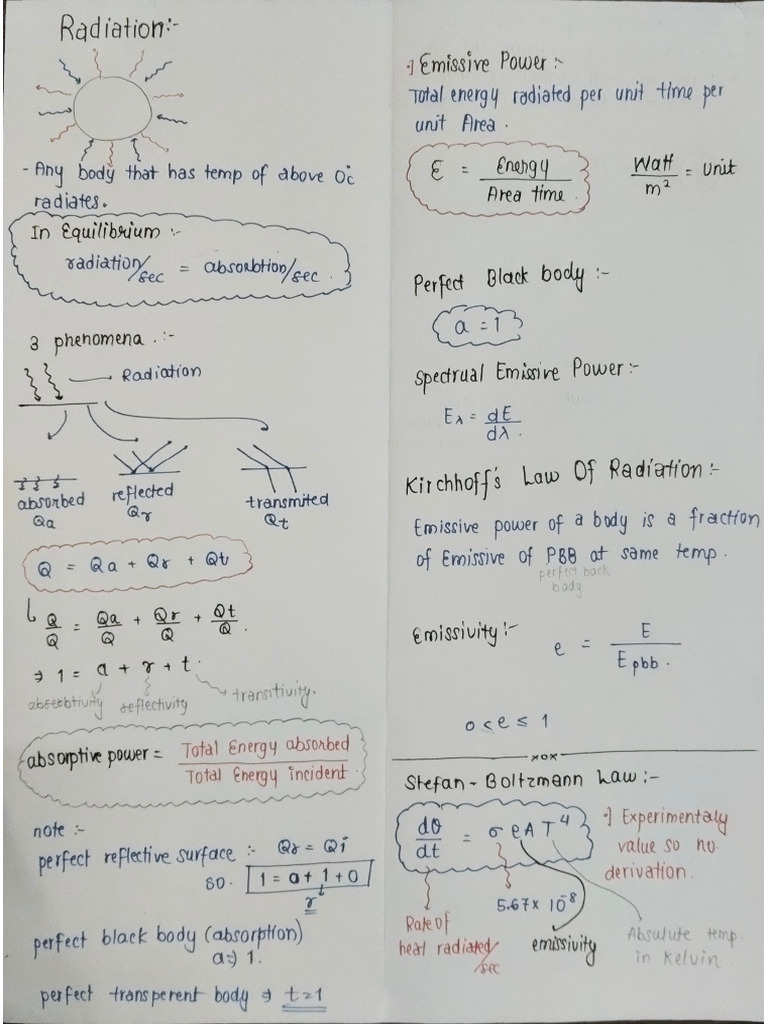 Radiation:-
- Any body that has temp of above 0°c
radiates.
In Equilibrium :-
radiation/sec = absorbtion/sec.
3 phenomena :-
Radiation
absorbed
Qa
reflected
Qr
transmited
Qt
Q = Qa + Qr + Qt
Q/Q = Qa/Q + Qr/Q + Qt/Q.
⇒ 1 = a + r + t.
absorbtivity reflectivity transitivity.
absorptive power = Total Energy absorbed / Total Energy incident
note :-
perfect reflective surface :- Qr = Qi
so. 1 = a + 1 + 0
r
perfect black body (absorption)
a ⇒ 1.
perfect transperent body ⇒ t = 1
Emissive Power :-
Total energy radiated per unit time per
unit Area.
E = Energy / Area time
Watt / m² = Unit
Perfect Black body :-
a = 1
Spectrual Emissive Power :-
Eλ = dE / dλ.
Kirchhoff's Law Of Radiation :-
Emissive power of a body is a fraction
of Emissive of PBB at same temp.
perfect back
body
Emissivity :-
e = E / Epbb.
0 < e ≤ 1
xox
Stefan - Boltzmann Law :-
dθ/dt = σ e A T⁴
Experimentaly
value so no
derivation.
5.67 × 10⁻⁸
Rate of
heat radiated/sec
emissivity
Absulute temp.
in Kelvin